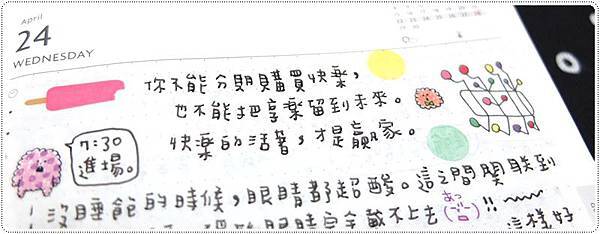 April
24
WEDNESDAY
你不能分期購買快樂，
也不能把享樂留到未來。
快樂的活著，才是贏家。
7:30
進場。
沒睡飽的時候，眼睛都超酸。這之間關联到
戴不上去
!!
這樣好